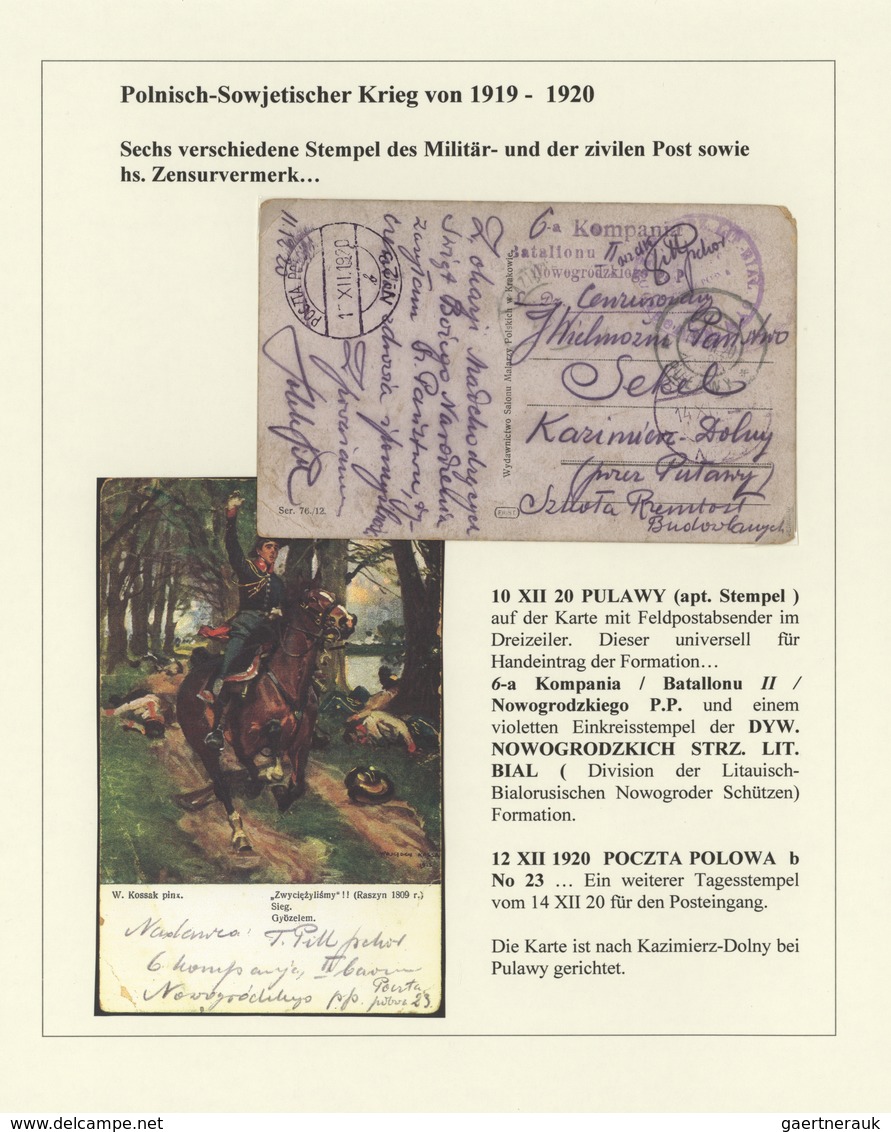 Polnisch-Sowjetischer Krieg von 1919 - 1920
Sechs verschiedene Stempel des Militär- und der zivilen Post sowie
hs. Zensurvermerk…
11.12.20
Z okazji nadchodzących
Świąt Bożego Narodzenia
zasyłam
POCZTA POLOWA
1- XII.1920
Ser. 76./12.
Wydawnictwo Salonu Malarzy Polskich w Krakowie.
6-a Kompania
Batalionu II
Nowogrodzkiego P. P.
Cenzurowany
JWielmożni Państwo
Sekel
Kazimierz-Dolny
(przez Puławy)
Szkoła Rzemiosł
Budowlanych
14 X
W. Kossak pinx.
„Zwyciężyliśmy"!! (Raszyn 1809 r.)
Sieg.
Gyözelem.
Nadawca: T. Pitt pchor
6 kompanja, II baonu
Nowogródzkiego pp. Poczta
polowa 23.
10 XII 20 PULAWY (apt. Stempel )
auf der Karte mit Feldpostabsender im
Dreizeiler. Dieser universell für
Handeintrag der Formation…
6-a Kompania / Batallonu II /
Nowogrodzkiego P.P. und einem
violetten Einkreisstempel der DYW.
NOWOGRODZKICH STRZ. LIT.
BIAL ( Division der Litauisch-
Bialorusischen Nowogroder Schützen)
Formation.
12 XII 1920 POCZTA POLOWA b
No 23 … Ein weiterer Tagesstempel
vom 14 XII 20 für den Posteingang.
Die Karte ist nach Kazimierz-Dolny bei
Pulawy gerichtet.
www.delcampe.net
gaertnerauk